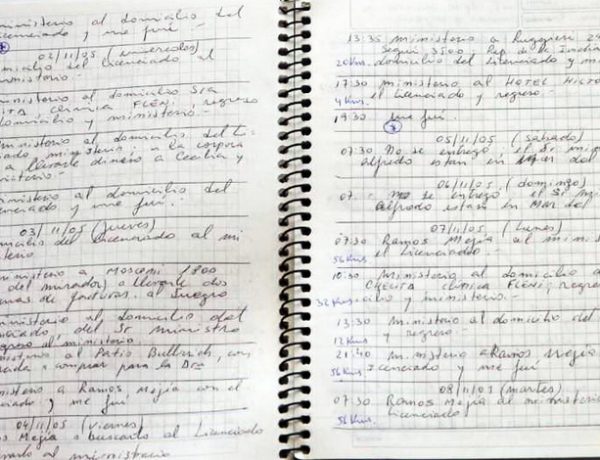 ministerio al domicilio del
Licenciado y me fui.-
02/11/05 (miercoles)
domicilio del Licenciado al
ministerio.-
ministerio al domicilio Sra
clinica FLENI, regreso
domicilio y ministerio.-
ministerio al domicilio del
ministerio, a la
a llevarle dinero a Cecilia y
ministerio.-
ministerio al domicilio del
Licenciado y me fui.-
03/11/05 (jueves)
domicilio del Licenciado al mi
ministerio a Mosconi
del mirador) a llevarle dos
de facturas. al Suegro
ministerio al domicilio del
Licenciado del Sr ministro
regreso al ministerio
ministerio al Patio Bullrich, con
a comprar para la
ministerio a Ramos Mejia con el
Licenciado y me fui
04/11/05 (viernes)
Mejia a buscarlo al Licenciado
al ministerio
13:35 ministerio a Ruggieri
Segui 3500 - Rep. de la
20 Kms. domicilio del Licenciado y mi
17:30 ministerio al HOTEL HILTO
4 Kms. el Licenciado y regreso.-
19:30 me fui.
05/11/05 (sabado)
07:30 No se entregó el Sr mi
alfredo estan en Mar del
06/11/05 (domingo)
07. - No se entregó el Sr. Mi
Alfredo estan en Mar del
07/11/05 (Lunes)
07:30 Ramos Mejia al minist
56 Kms el Licenciado.-
10:30 Ministerio al domicilio a
clinica FLENI, regre
32 Kms. cilio y ministerio.-
13:30 ministerio al domicilio del
12 Kms y regreso.-
21:40 ministerio a Ramos Mejia
56 Kms Licenciado y me fui
08/11/05 (martes)
07:30 Ramos Mejia al ministerio
56 Kms. Licenciado